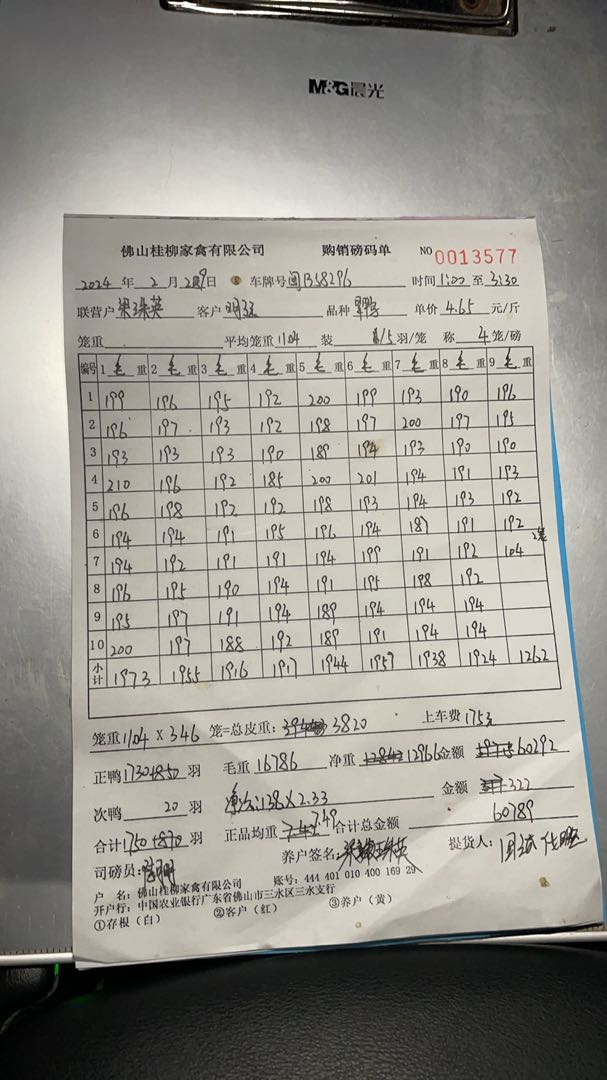 M&G晨光
佛山桂柳家禽有限公司 购销磅码单 NO 0013577
2024 年 2 月 29 日 车牌号 闽B58296 时间 1:00 至 3:30
联营户 梁珠英 客户 明 品种 单价 4.65 元/斤
笼重 平均笼重 1104 装 15 羽/笼 称 4 笼/磅
编号 1 毛 重 2 毛 重 3 毛 重 4 毛 重 5 毛 重 6 毛 重 7 毛 重 8 毛 重 9 毛 重
1 199 196 195 192 200 199 193 190 196
2 196 197 193 192 198 197 200 197 195
3 193 193 193 190 189 194 193 190 190
4 210 196 192 185 200 201 194 191 193
5 196 198 192 192 198 193 194 193 192
6 194 194 191 195 196 194 187 191 192
7 194 192 191 191 194 199 191 192 104 2笼
8 196 195 190 194 191 195 198 192
9 195 197 191 194 189 194 194 194
10 200 197 188 192 189 191 194 194
小计 1973 1955 1916 1917 1944 1957 1938 1924 1262
笼重 1104 X 346 笼=总皮重: 3820 上车费 1753
正鸭 1730+850 羽 毛重 16786 净重 12966 金额 60292
次鸭 20 羽 净次:138 X 2.33 金额 322
合计 1750+870 羽 正品均重 7.49 合计总金额 60789
司磅员: 养户签名: 梁珠英 提货人:
户 名: 佛山桂柳家禽有限公司 账号: 444 401 010 400 169 29
开户行: 中国农业银行广东省佛山市三水区三水支行
①存根(白) ②客户(红) ③养户(黄)